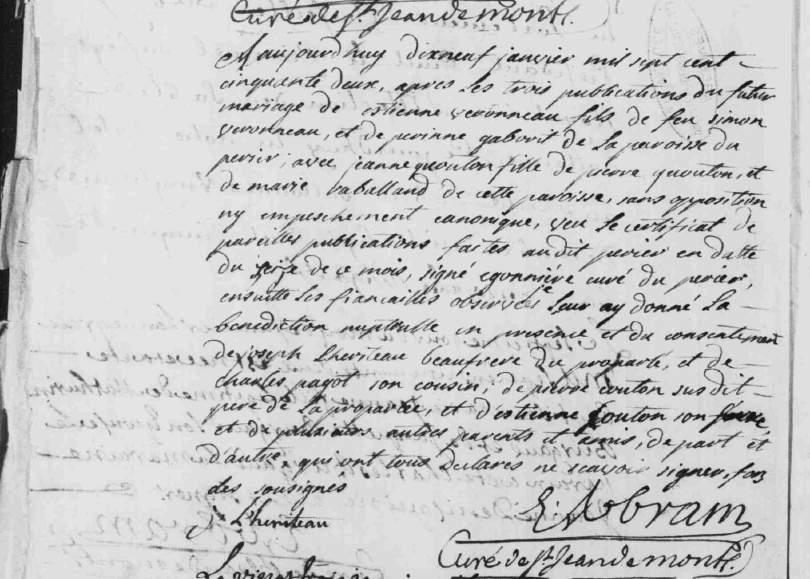 Curé de St Jean de mont.
aujourdhuy dixneuf janvier mil sept cent
cinquante deux, apres les trois publications du futur
mariage de estienne veronneau fils de feu simon
veronneau, et de perinne gaborit de la paroisse du
perier, avec jeanne quouton fille de pierre quouton, et
de marie raballand de cette paroisse, sans opposition
ny empeschement canonique, veu le certificat de
pareilles publications faites au dit perier en datte
du seize de ce mois, signé curé du perier,
ensuitte les fiancailles observées je leur ay donné la
benediction nuptialle en presence et du consentement
de joseph Lheriteau beaufrere du proparlé, et de
charles pagot son cousin, de pierre couton susdit
pere de la proparlée, et d'estienne couton son frere,
et de plusieurs autres parents et amis, de part et
d'autre, qui ont tous declarés ne scavoir signer, fors
des sousignés
J Lheriteau
Abram
Curé de St Jean de mont.